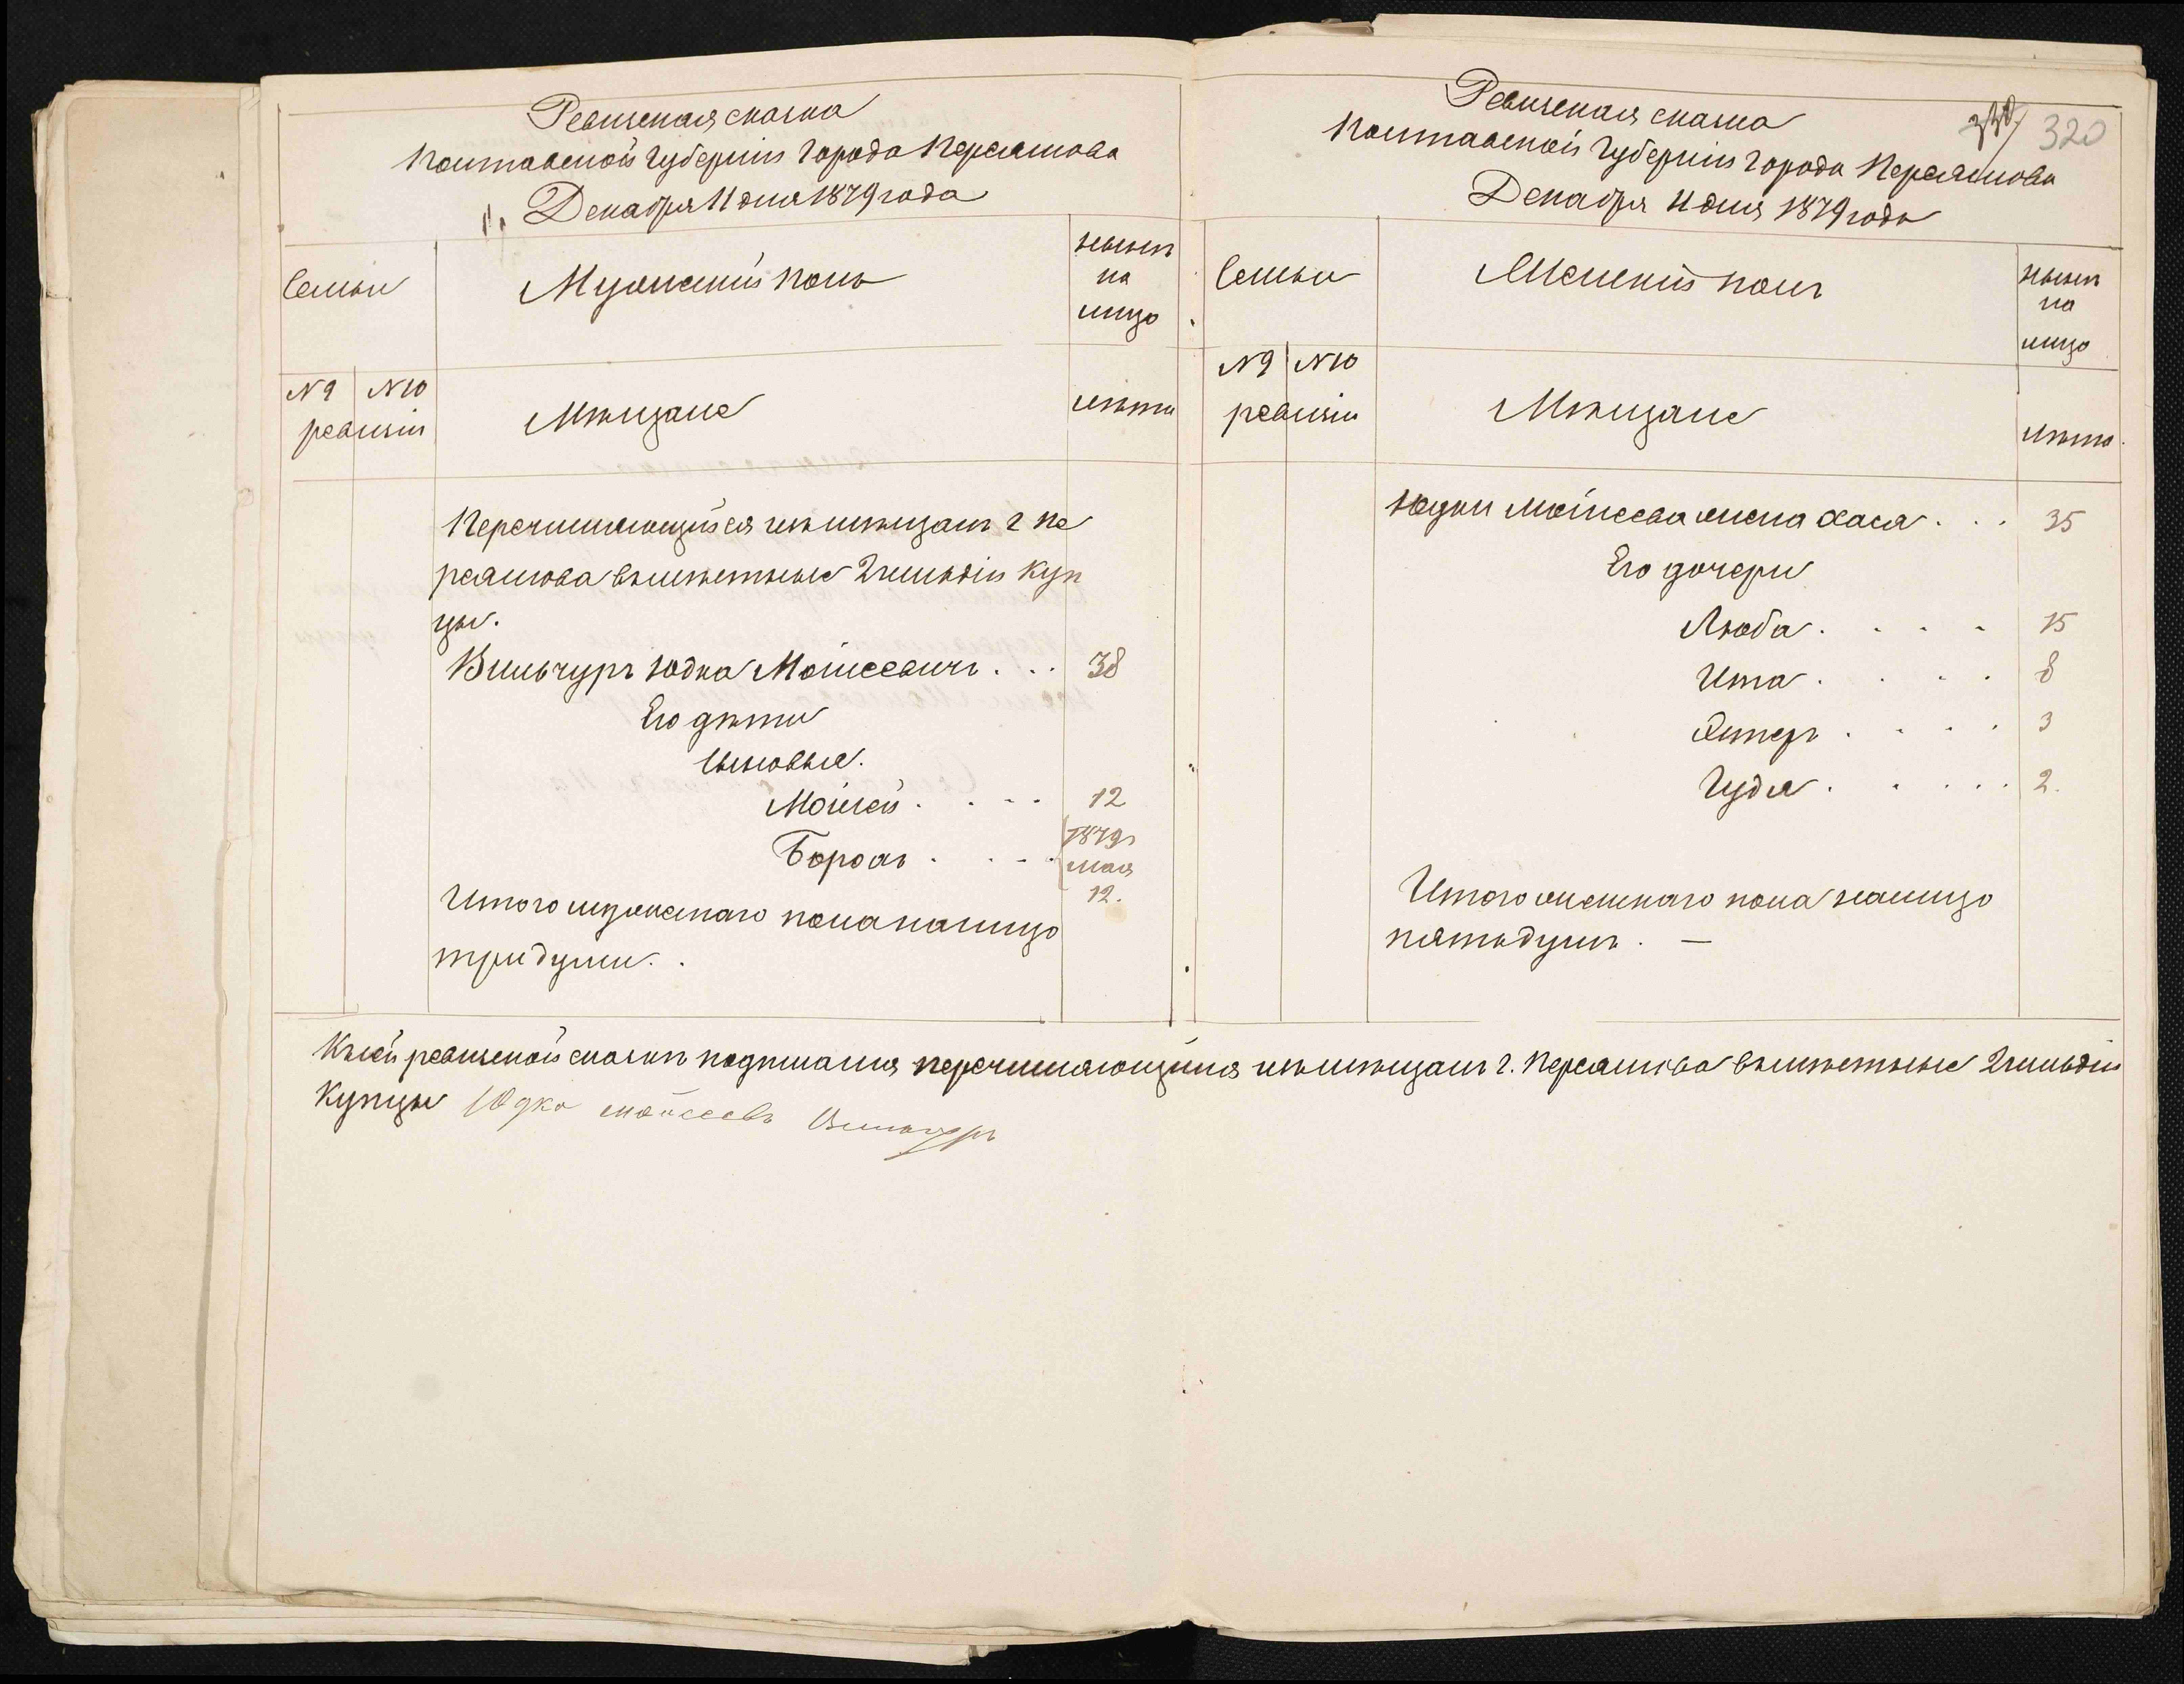 Ревизская сказка
Полтавской Губерніи Города Переяслова
Декабря 11 дня 1879 года
Семьи
Мужескій полъ
нынѣ
на
лицо
№ 9 № 10
ревизіи
Мѣщане
лѣта
Перечисляющійся изъ мѣщанъ г. Пе
реяслова въ мѣстные 2 гильдіи куп
цы.
Вильчуръ Юдка Мойсеевичъ . . . 38
Его дѣти
сыновья.
Мойсей . . . . 12
Борохъ . . . . 1879 г
мая
12.
Итого мужескаго пола налицо
три души. .
Ревизская сказка
320
Полтавской Губерніи Города Переяслова
Декабря 11 дня 1879 года
Семьи
Женскій полъ
нынѣ
на
лицо
№ 9 № 10
ревизіи
Мѣщане
лѣта
Юдки Мойсеева жена Хася . . . 35
Его дочери
Люба . . . . 15
Ита . . . . 8
Эстеръ . . . . 3
Гудя . . . . . 2.
Итого женскаго пола налицо
пять душъ. —
Къ сей ревизской сказкѣ подписался перечисляющійся изъ мѣщанъ г. Переяслова въ мѣстные 2 гильдіи
купцы Юдка Мойсеевъ Вильчуръ